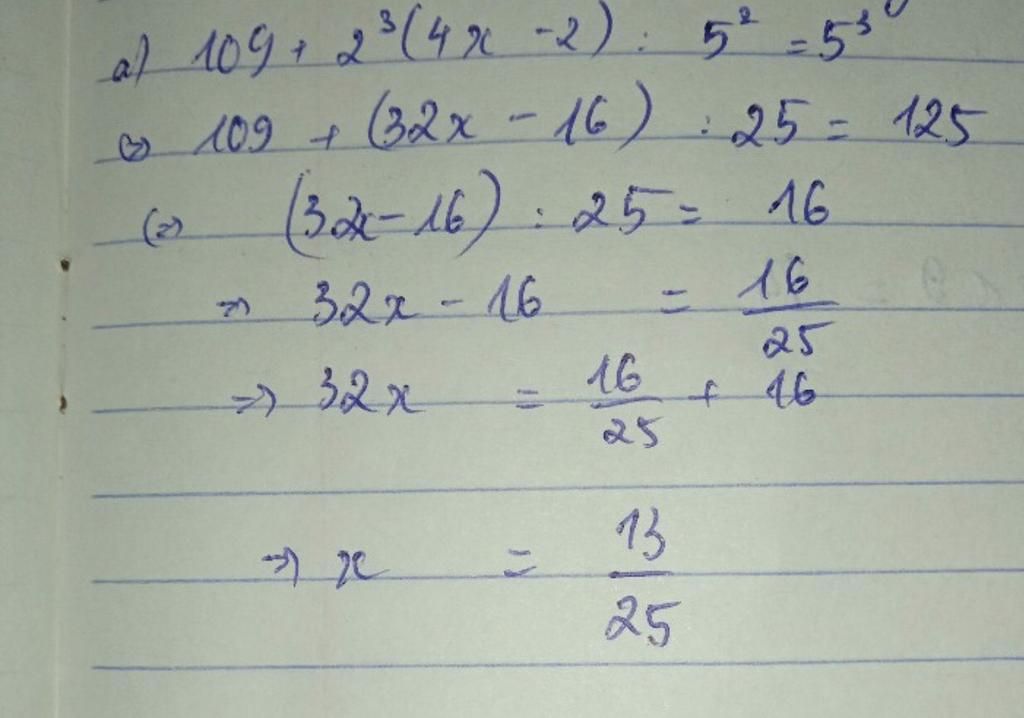 a) 109 + 2³(4x - 2) : 5² = 5³
<=> 109 + (32x - 16) : 25 = 125
(=> (32x - 16) : 25 = 16
=> 32x - 16 = 16/25
=> 32x = 16/25 + 16
=> x = 13/25